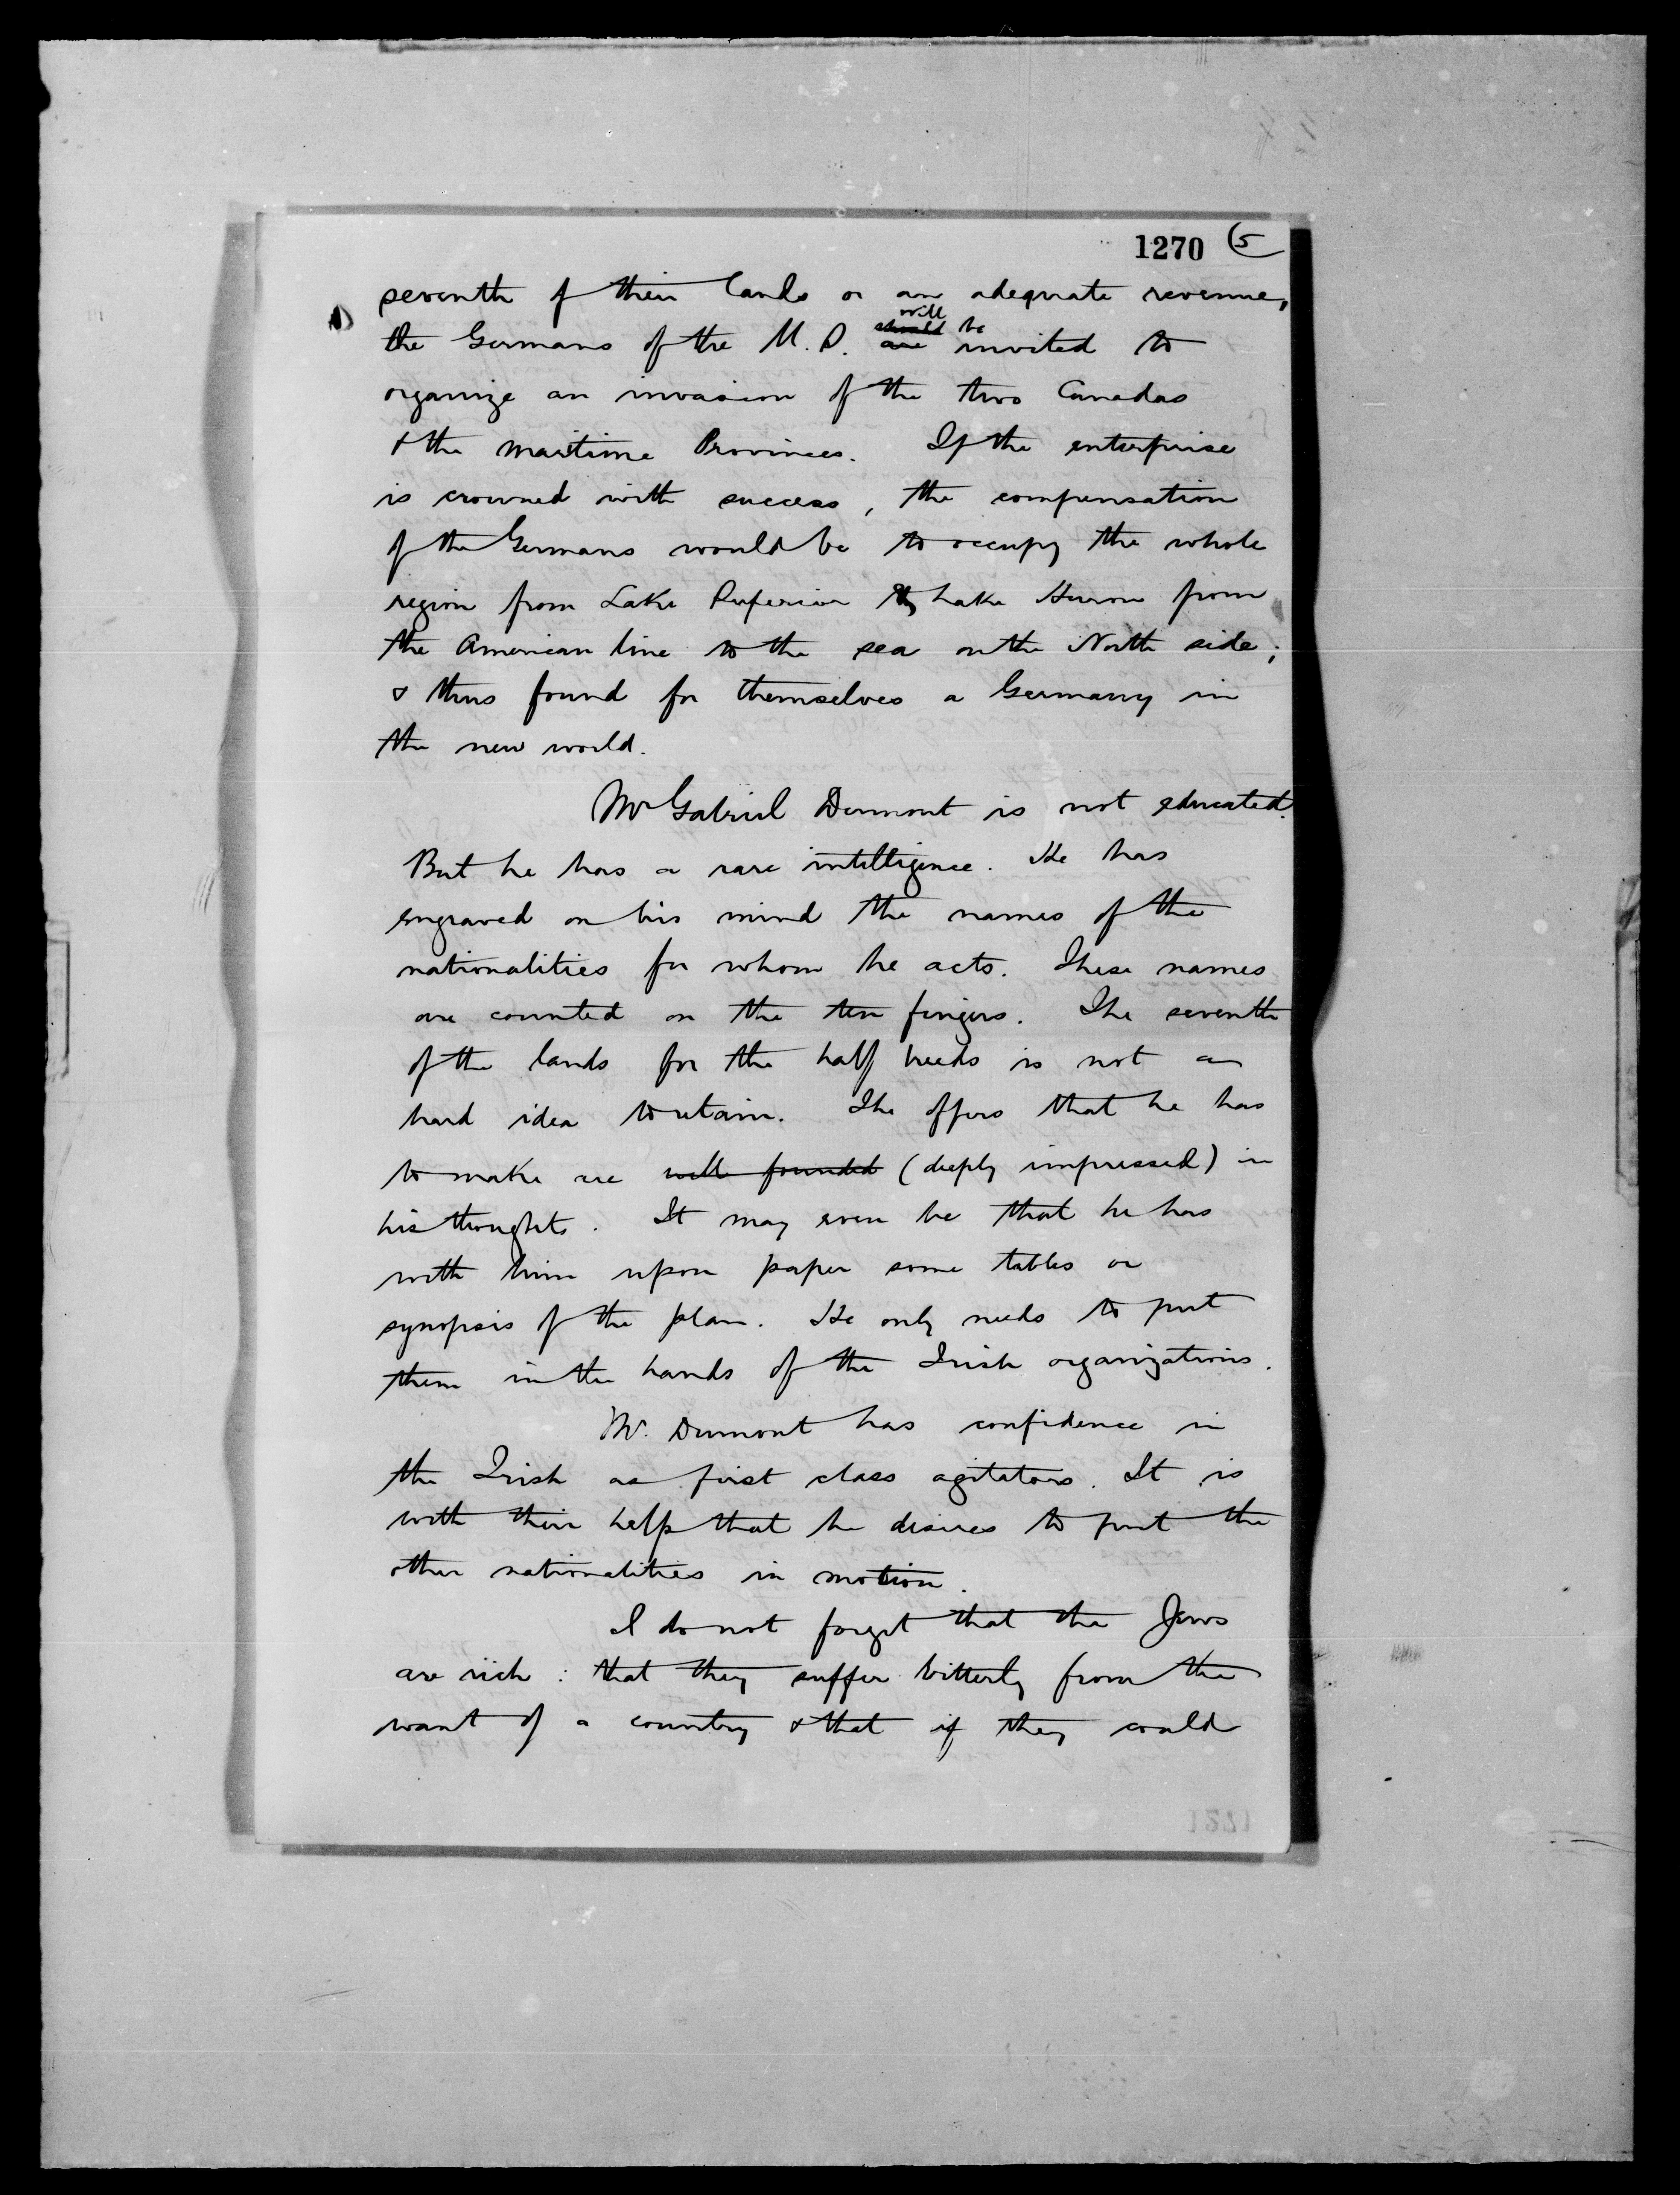 1270 (5
seventh of their lands or an adequate revenue,
will
should be
the Germans of the U.S. are invited to
organize an invasion of the two Canadas
& the Maritime Provinces. If the enterprise
is crowned with success, the compensation
of the Germans would be to occupy the whole
region from Lake Superior & Lake Huron from
the American line to the sea on the North side;
& thus found for themselves a Germany in
the new world.
Mr Gabriel Dumont is not educated.
But he has a rare intelligence. He has
engraved on his mind the names of the
nationalities for whom he acts. These names
are counted on the ten fingers. The seventh
of the lands for the half breeds is not a
hard idea to retain. The offers that he has
to make are well founded (deeply impressed) in
his thoughts. It may even be that he has
with him upon paper some tables or
synopsis of the plan. He only needs to put
them in the hands of the Irish organizations.
Mr. Dumont has confidence in
the Irish as first class agitators. It is
with their help that he desires to put the
other nationalities in motion.
I do not forget that the Jews
are rich : that they suffer bitterly from the
want of a country & that if they could
1271